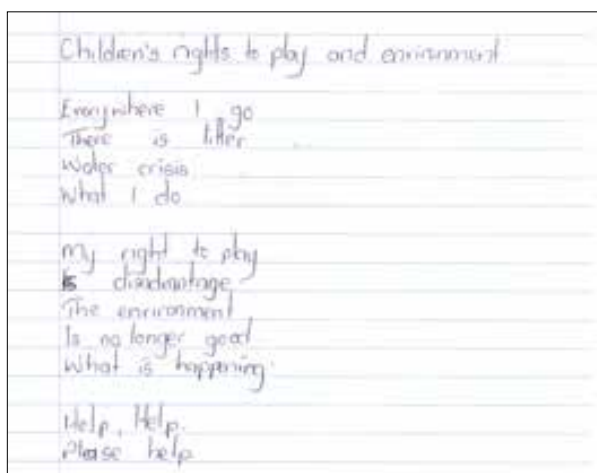 Children's rights to play and environment
Everywhere I go
There is litter
Water crisis
What I do
My right to play
Is disadvantage
The environment
Is no longer good
What is happening
Help, Help.
Please help